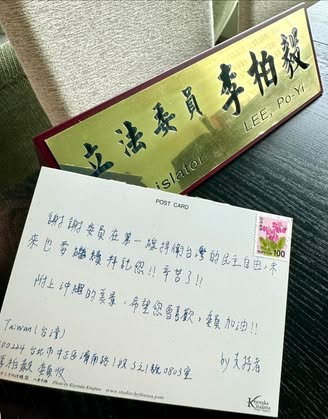 立法委員 李柏毅
Legislator LEE, Po-Yi
POST CARD
100
謝謝委員在第一線捍衛台灣的民主自由,未
來也要繼續拜託您!!辛苦了!!
附上沖繩的美景,希望您會喜歡,委員加油!!
by 支持者
Taiwan(台灣)
100224 台北市中正區濟南路1段3之1號0805室
李柏毅 委員收
Photo by Kiyotaka Kitajima
www.studio-kitajima.com
Kiyotaka
Kitajima